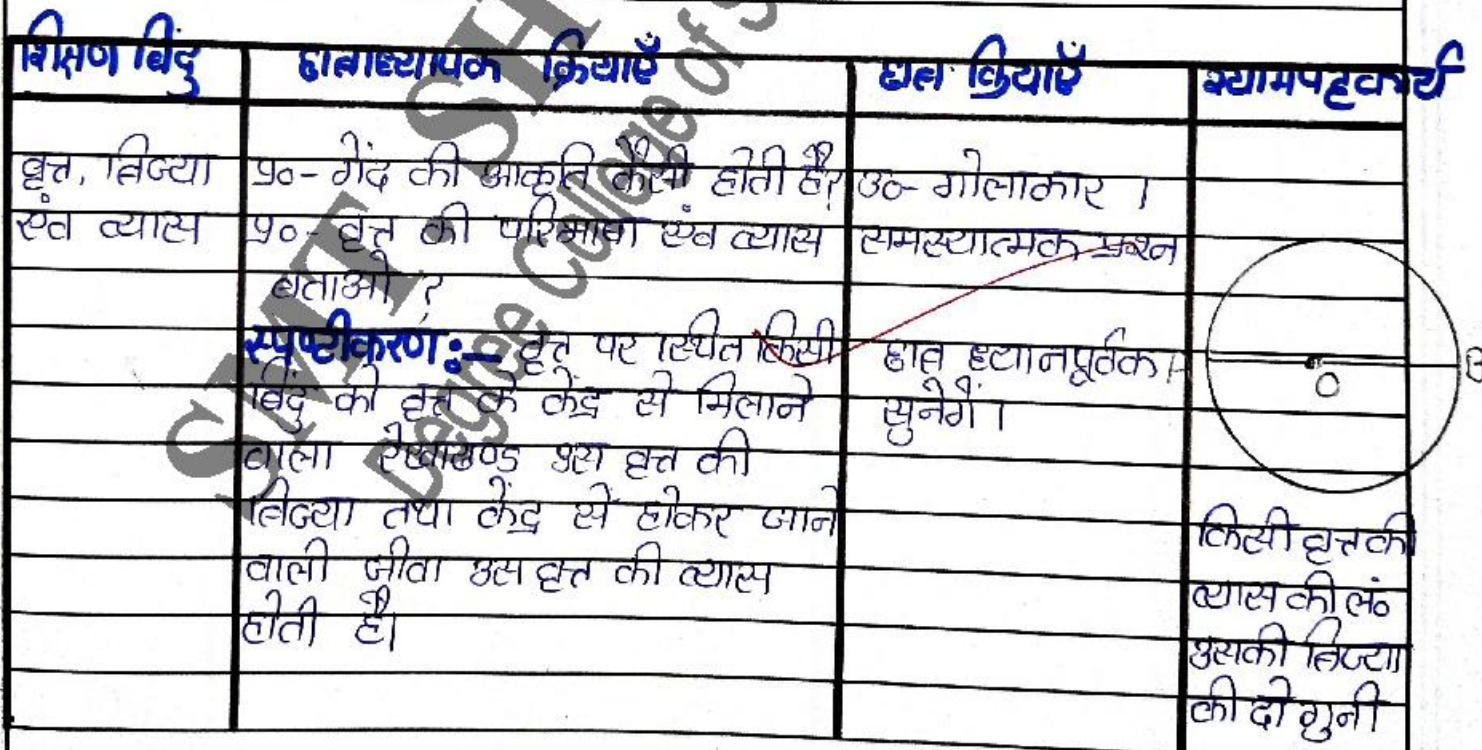 शिक्षण बिंदु
छात्राध्यापक क्रियाएँ
छात्र क्रियाएँ
श्यामपट्टकार्य
वृत्त, त्रिज्या
एंव व्यास
प्र०- गेंद की आकृति कैसी होती है?
प्र०- वृत्त की परिभाषा एंव व्यास
बताओ ?
स्पष्टीकरण:— वृत्त पर स्थित किसी
बिंदु को वृत्त के केंद्र से मिलाने
वाला रेखाखण्ड उस वृत्त की
त्रिज्या तथा केंद्र से होकर जाने
वाली जीवा उस वृत्त की व्यास
होती है।
उ०- गोलाकार ।
समस्यात्मक प्रश्न
छात्र ध्यानपूर्वक
सुनेगें।
O
B
किसी वृत्त की
व्यास की लं०
उसकी त्रिज्या
की दो गुनी
SMT SH
Degree College of S